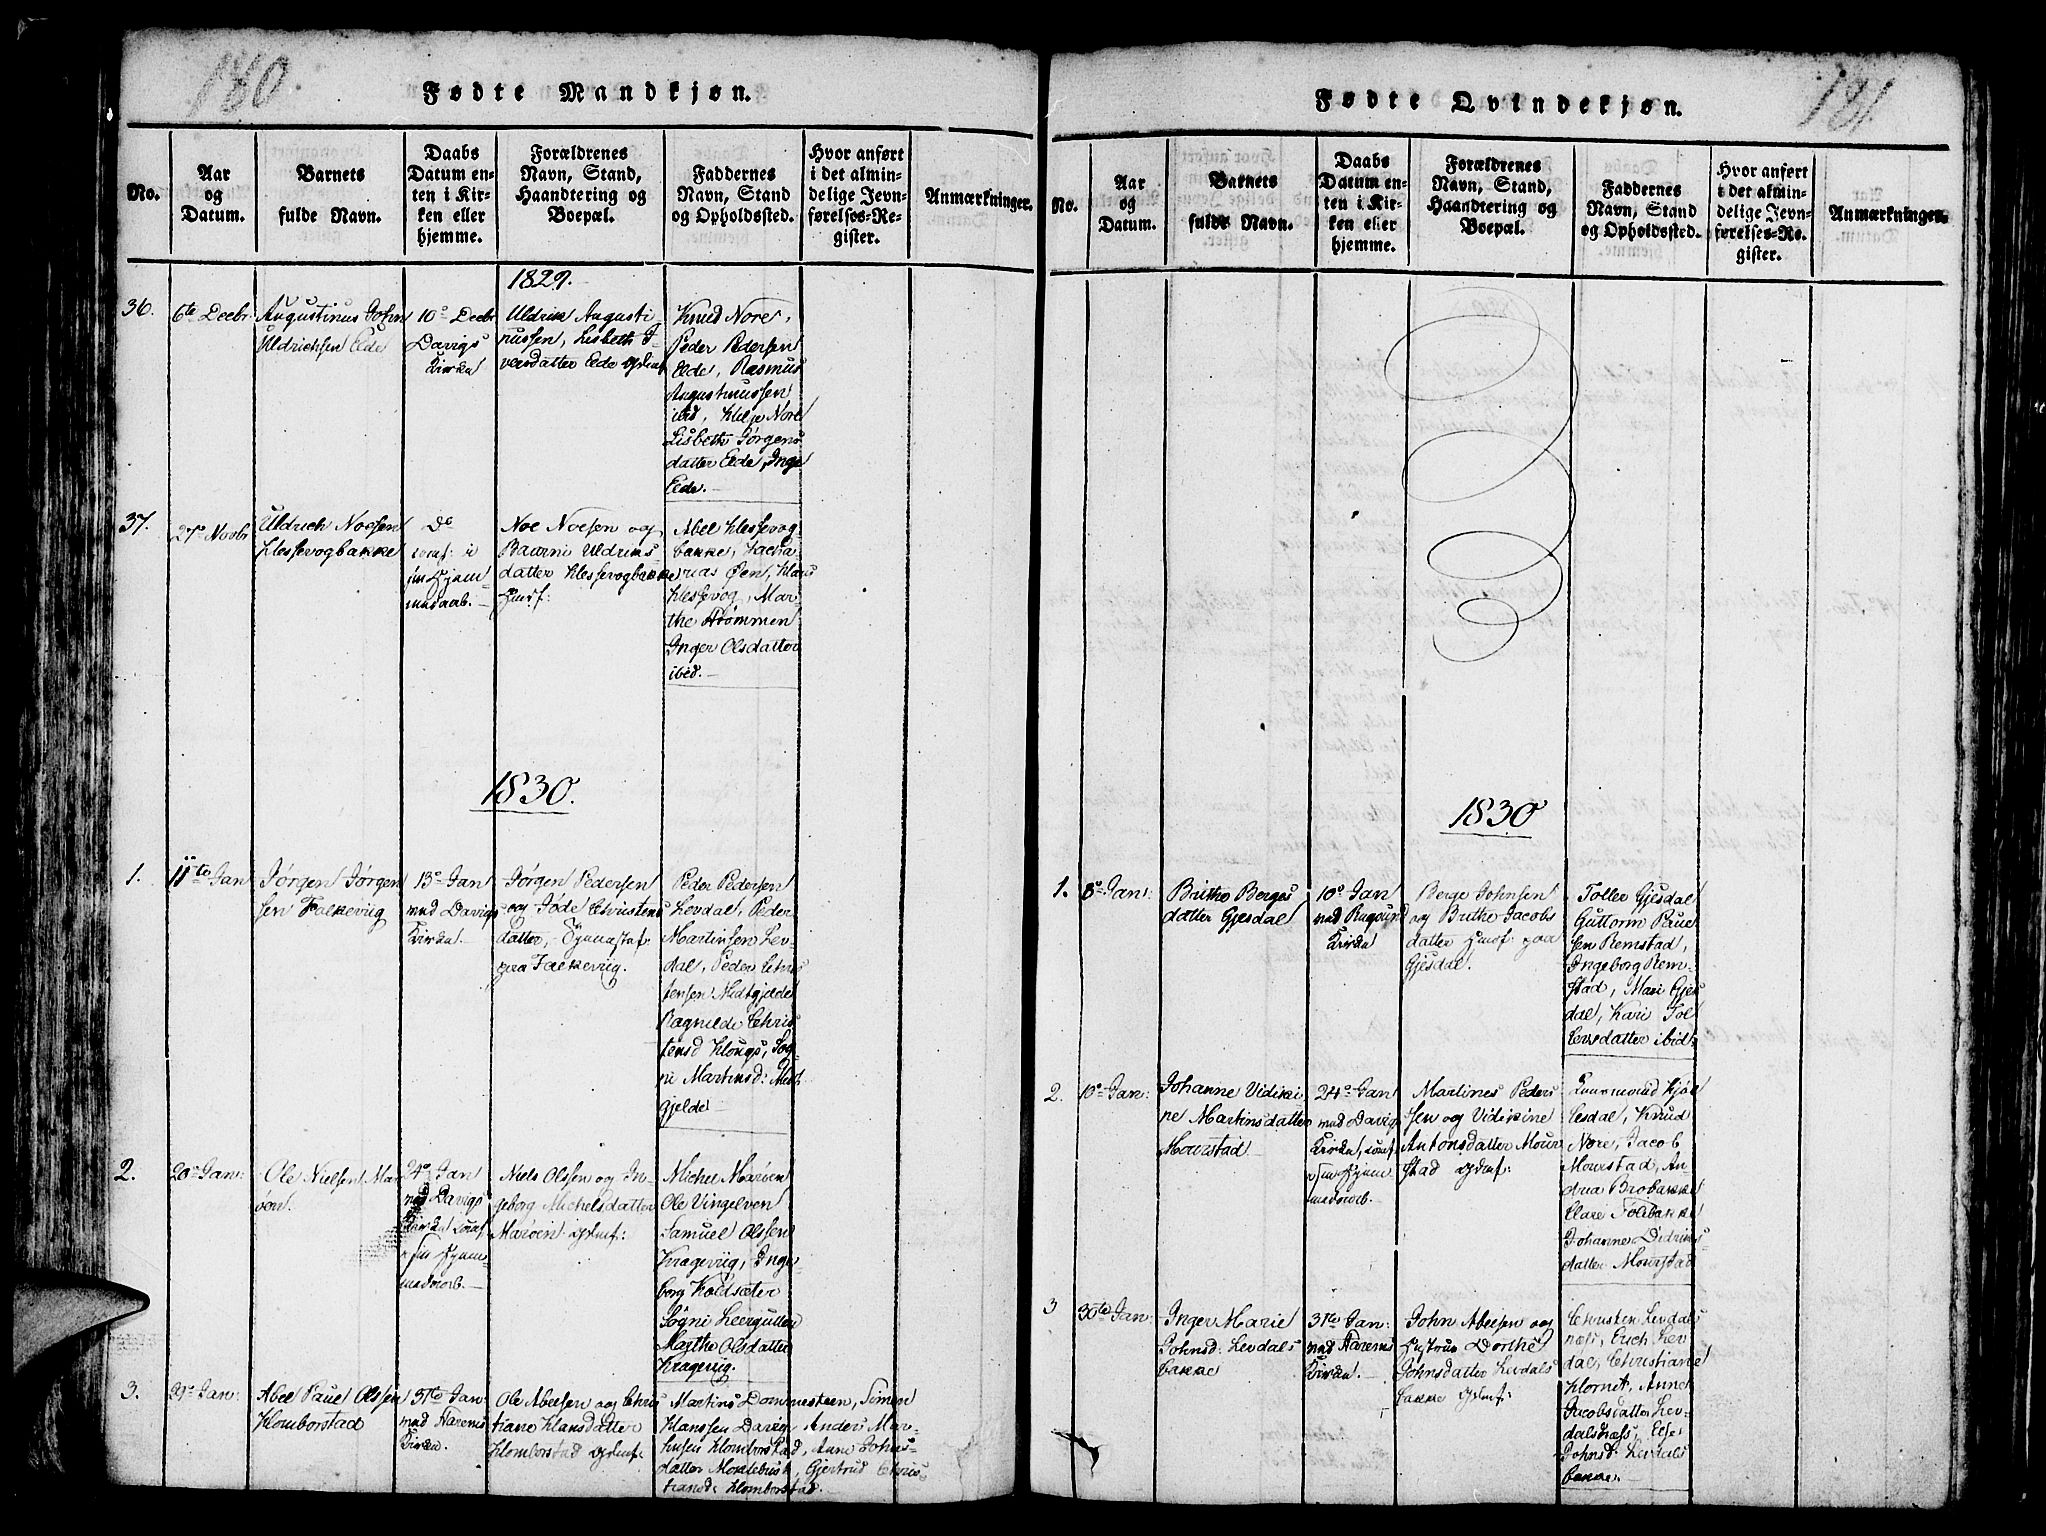 180.
Fødte Mandkjøn.
No.
Aar
og
Datum.
Barnets
fulde Navn.
Daabs
Datum en-
ten i Kir-
ken eller
hjemme.
Forældrenes
Navn, Stand,
Haandtering og
Boepæl.
Faddernes
Navn, Stand
og Opholdssted.
Hvor anført
i det almin-
delige Jevn-
førelses-Re-
gister.
Anmærkninger.
1829.
36.
6te Decbr
Augustinus John
Uldrichsen Eide
10de Decbr
Davigs
Kirke
Uldrik Augusti-
nussen, Lisbeth I-
versdatter Eide
Knud Nore,
Peder Pedersen
Eide, Rasmus
Augustinussen
ibid, Helje Nore
Lisbeth Jørgens
datter Eide, Inge
Eide.
37.
27de Novbr
Uldrich Noesen
Hessevogbakke
Do
conf: i
Noe Noesen og
Uldriks
datter Hessevogbakke
Abel Hessevog
bakke,
Øen, Hans
Hessevog, Mar-
the Strømmen
Inger Olsdatter
ibid.
1830.
1.
11te Jan
Jørgen Jørgen
sen Falkeviig
13de Jan
ved Davigs
Kirke.
Jørgen Pedersen
og Christens
datter,
paa Falkeviig.
Peder Pedersen
Levdal, Peder
Martinsen Lev
dal, Peder Chris
tensen Midtgjelde
Ragnilde Chris
tensd
Martinsd: Midt
gjelde
2.
20de Jan:
Ole Nielsen Mar
øen
24de Jan
ved Davigs
Kirke conf
Niels Olssen og In-
geborg Michelsdatter
Marøen
Michel Marøen
Ole Vingelven
Samuel Olssen
Krageviig, Inge
borg Koldsæter
Søgni Leergutten
Marthe Olsdatter
Kragevig.
3.
29de Jan:
Abel Paul Olssen
Homborstad
31te Jan
ved
Kirke.
Ole Abelsen og Chris
tiane Hansdatter
Homborstad
Martins Dommesteen, Simon
Hanssen Davig, Anders Mar-
Homborstad, Anne Johns-
datter Moldebust, Gjertrud Chris-
tiansd: Homborstad.
181.
Fødte Qvindekjøn.
No.
Aar
og
Datum.
Barnets
fulde Navn.
Daabs
Datum en-
ten i Kir-
ken eller
hjemme.
Forældrenes
Navn, Stand,
Haandtering og
Boepæl.
Faddernes
Navn, Stand
og Opholdssted.
Hvor anført
i det almin-
delige Jevn-
førelses-Re-
gister.
Anmærkninger.
1830
1.
8de Jan:
Brithe Berges
datter Gjesdal
10de Jan
ved Rugsund
Kirke
Berge Johnsen
og Brithe Jacobs
datter paa
Gjesdal.
Toller Gjesdal
Guttorm Paul
sen Remstad,
Ingeborg Rem-
stad, Mari Gjes
dal, Kari Tol
lersdatter ibid.
2.
10de Jan:
Johanne Vidiki
ne Martinsdatter
Mourstad
24de Jan
ved Davigs
Kirke, conf
Martines Peders
sen og Vidikine
Antonsdatter Mour
stad
Knud
Nore, Jacob
Mourstad, An
drea Brobakke
Johanne Didriks-
datter Mourstad
3
30te Jan:
Inger Marie
Johnsd: Levdals
bakke
31te Jan:
ved
Kirke.
John Abelsen og
Hustrue Dorthe
Johnsdatter Levdals
bakke
Christen Levdals
næs, Erich Lev
dal, Christiane
Hornet, Anne
Jacobsdatter Lev-
dalsnæs, Else
Johnsd: Levdals
bakke.